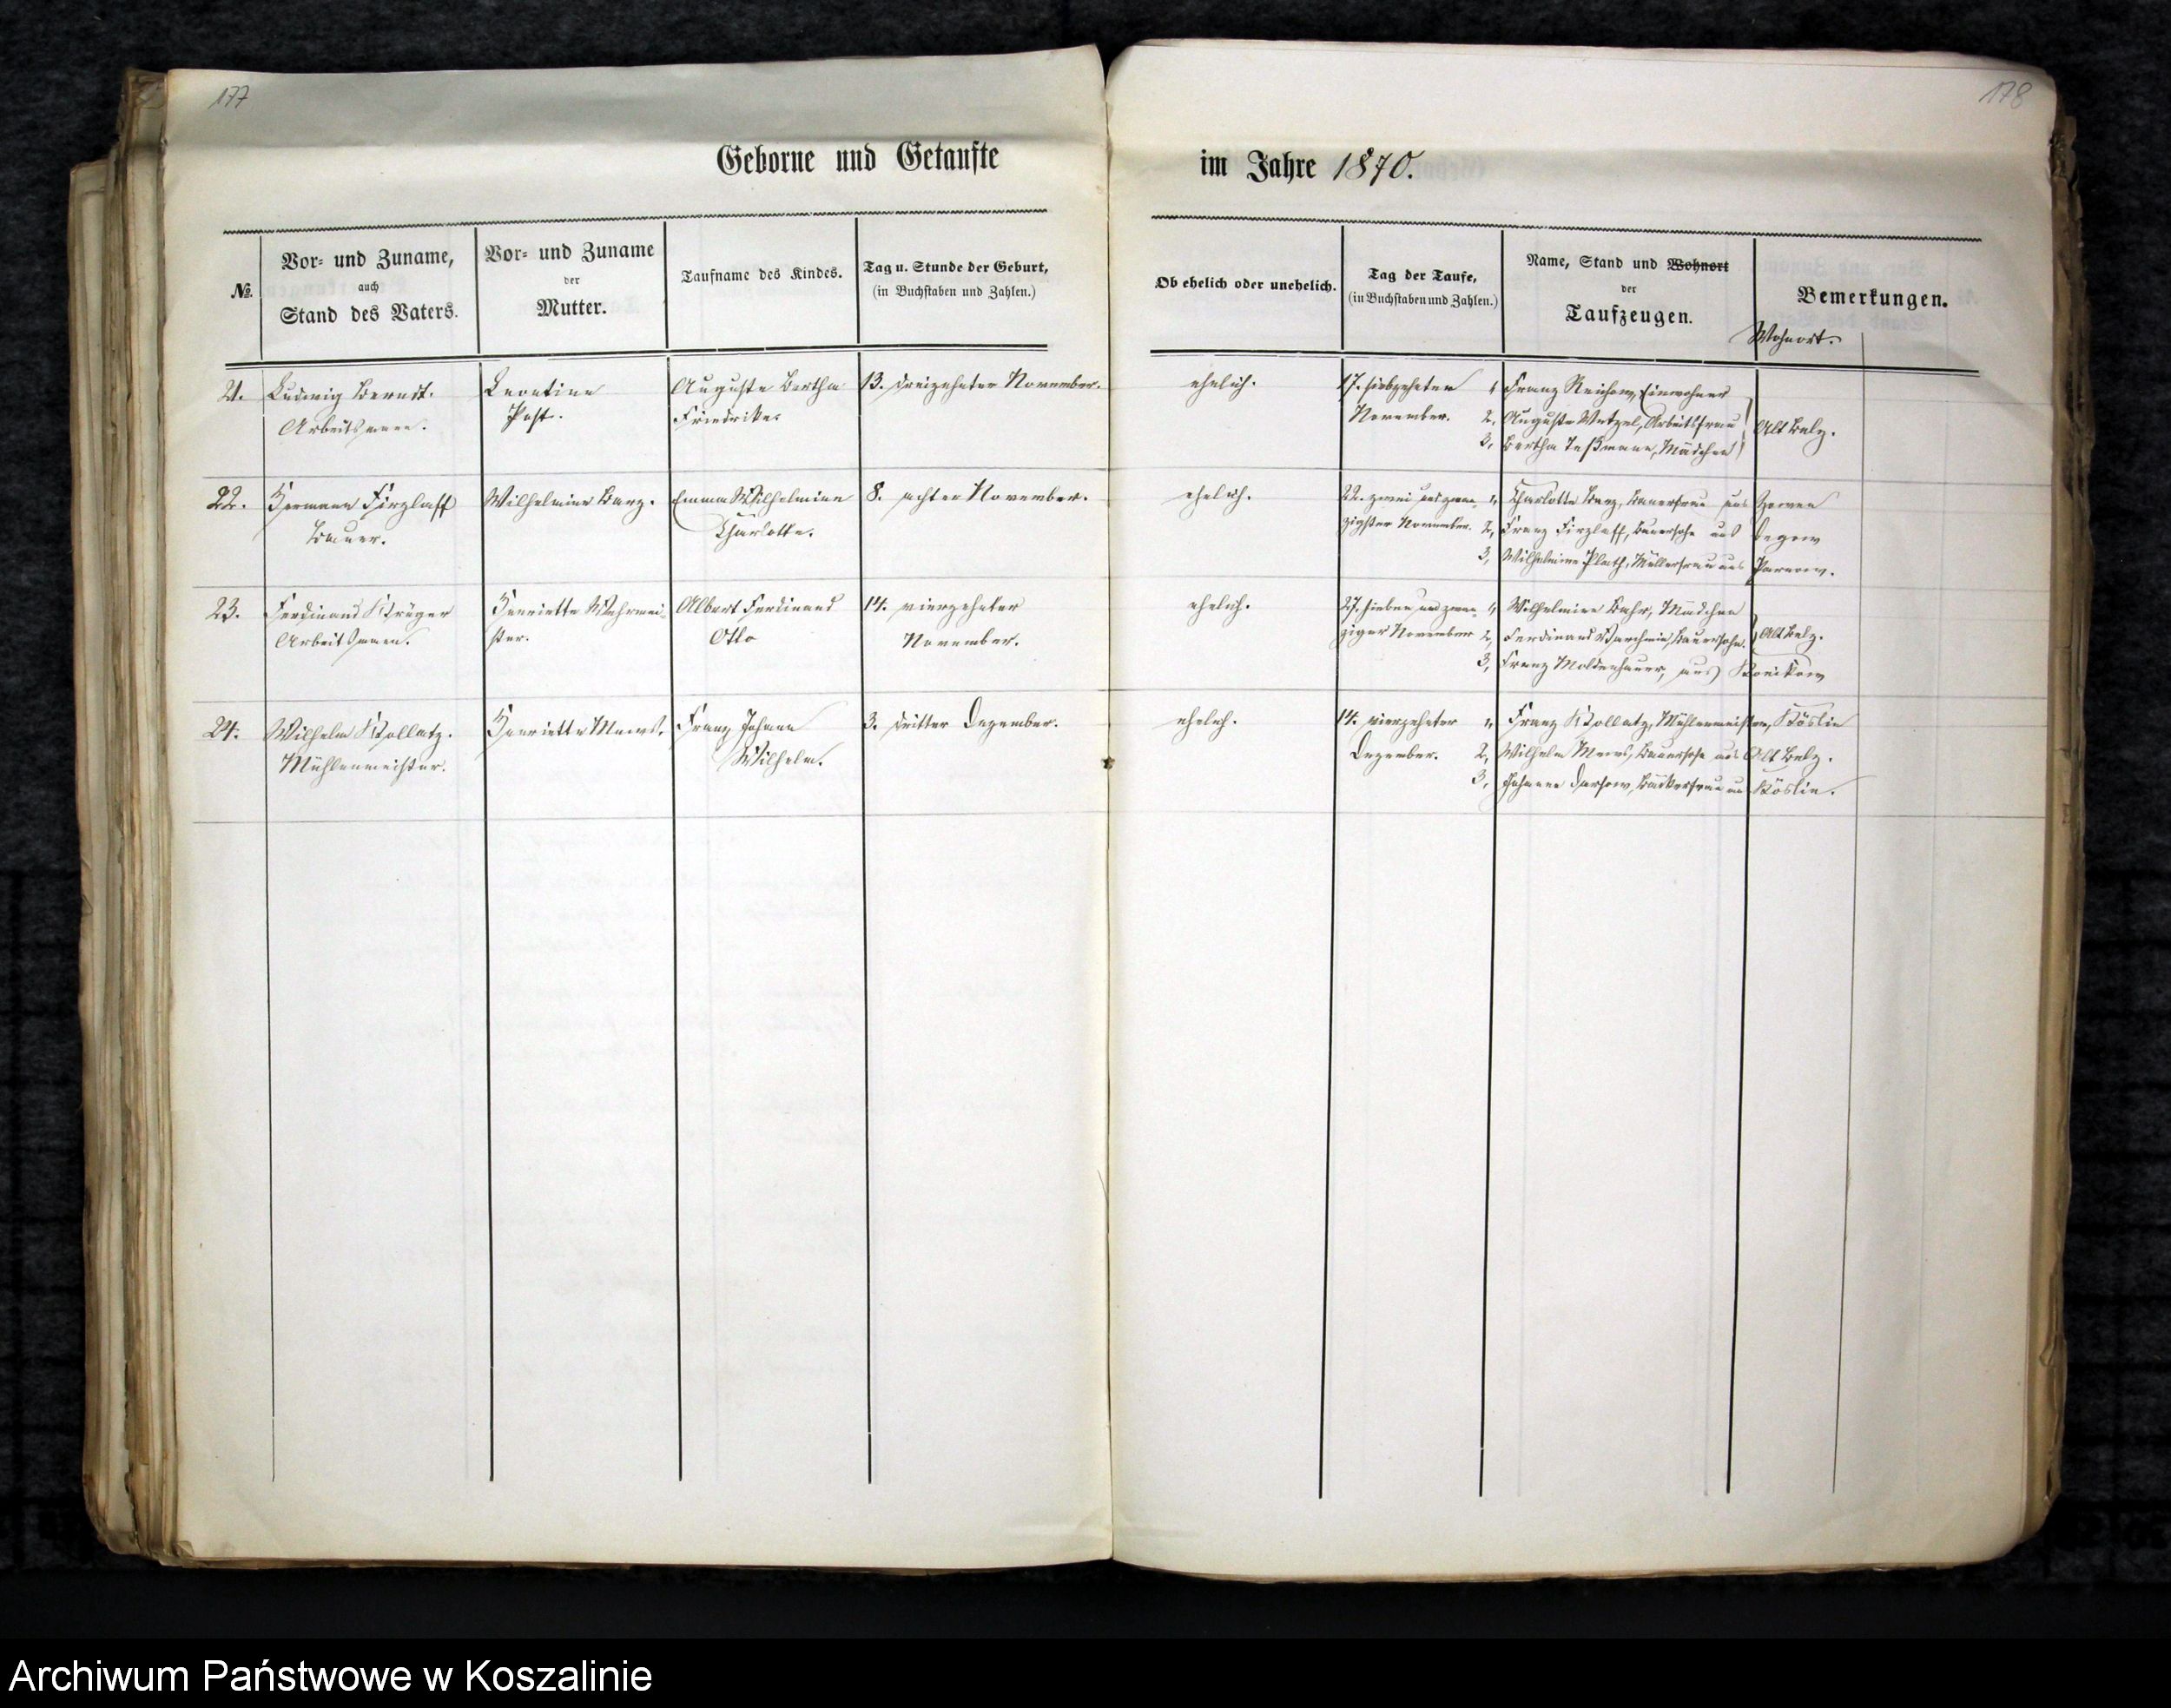 177
178
Geborne und Getaufte
im Jahre 1870.
№.
Vor- und Zuname,
auch
Stand des Vaters.
Vor- und Zuname
der
Mutter.
Taufname des Kindes.
Tag u. Stunde der Geburt,
(in Buchstaben und Zahlen.)
Ob ehelich oder unehelich.
Tag der Taufe,
(in Buchstaben und Zahlen.)
Name, Stand und Wohnort
der
Taufzeugen.
Bemerkungen.
Wohnort.
21.
Ludwig Berndt.
Arbeitsmann.
Leontine
Post.
Auguste Bertha
Friedrike.
13. dreizehnter November.
ehelich.
17. siebzehnten
November.
1, Franz Reichow, Einwohner
2, Auguste Wetzel, Arbeitsfrau
3, Bertha Teßmann, Mädchen
Alt Belz.
22.
Hermann Firzlaff
Bauer.
Wilhelmine Banz.
Emma Wilhelmine
Charlotte.
8. achter November.
ehelich.
22. zwei und zwan-
zigster November.
1, Charlotte Banz, Bauerfrau aus
2, Franz Firzlaff, Bauersohn aus Degow
3, Wilhelmine Plath, Müllerfrau aus Parnow.
23.
Ferdinand Krüger
Arbeitsmann.
Henriette Wehrmei-
ster.
Albert Ferdinand
Otto
14. vierzehnter
November.
ehelich.
27. sieben und zwan-
ziger November
1, Wilhelmine Bahr, Mädchen
2, Ferdinand Bauersohn.
Alt Belz.
3, Franz Moldenhauer, aus Konikow
24.
Wilhelm Kollatz.
Mühlenmeister.
Henriette Mews.
Franz Johann
Wilhelm.
3. dritter Dezember.
ehelich.
14. vierzehnter
Dezember.
1, Franz Kollatz, Mühlenmeister, Köslin
2, Wilhelm Mews, Bauersohn aus Alt Belz.
3, Johanne Darsow, Bäckerfrau aus Köslin.
Archiwum Państwowe w Koszalinie